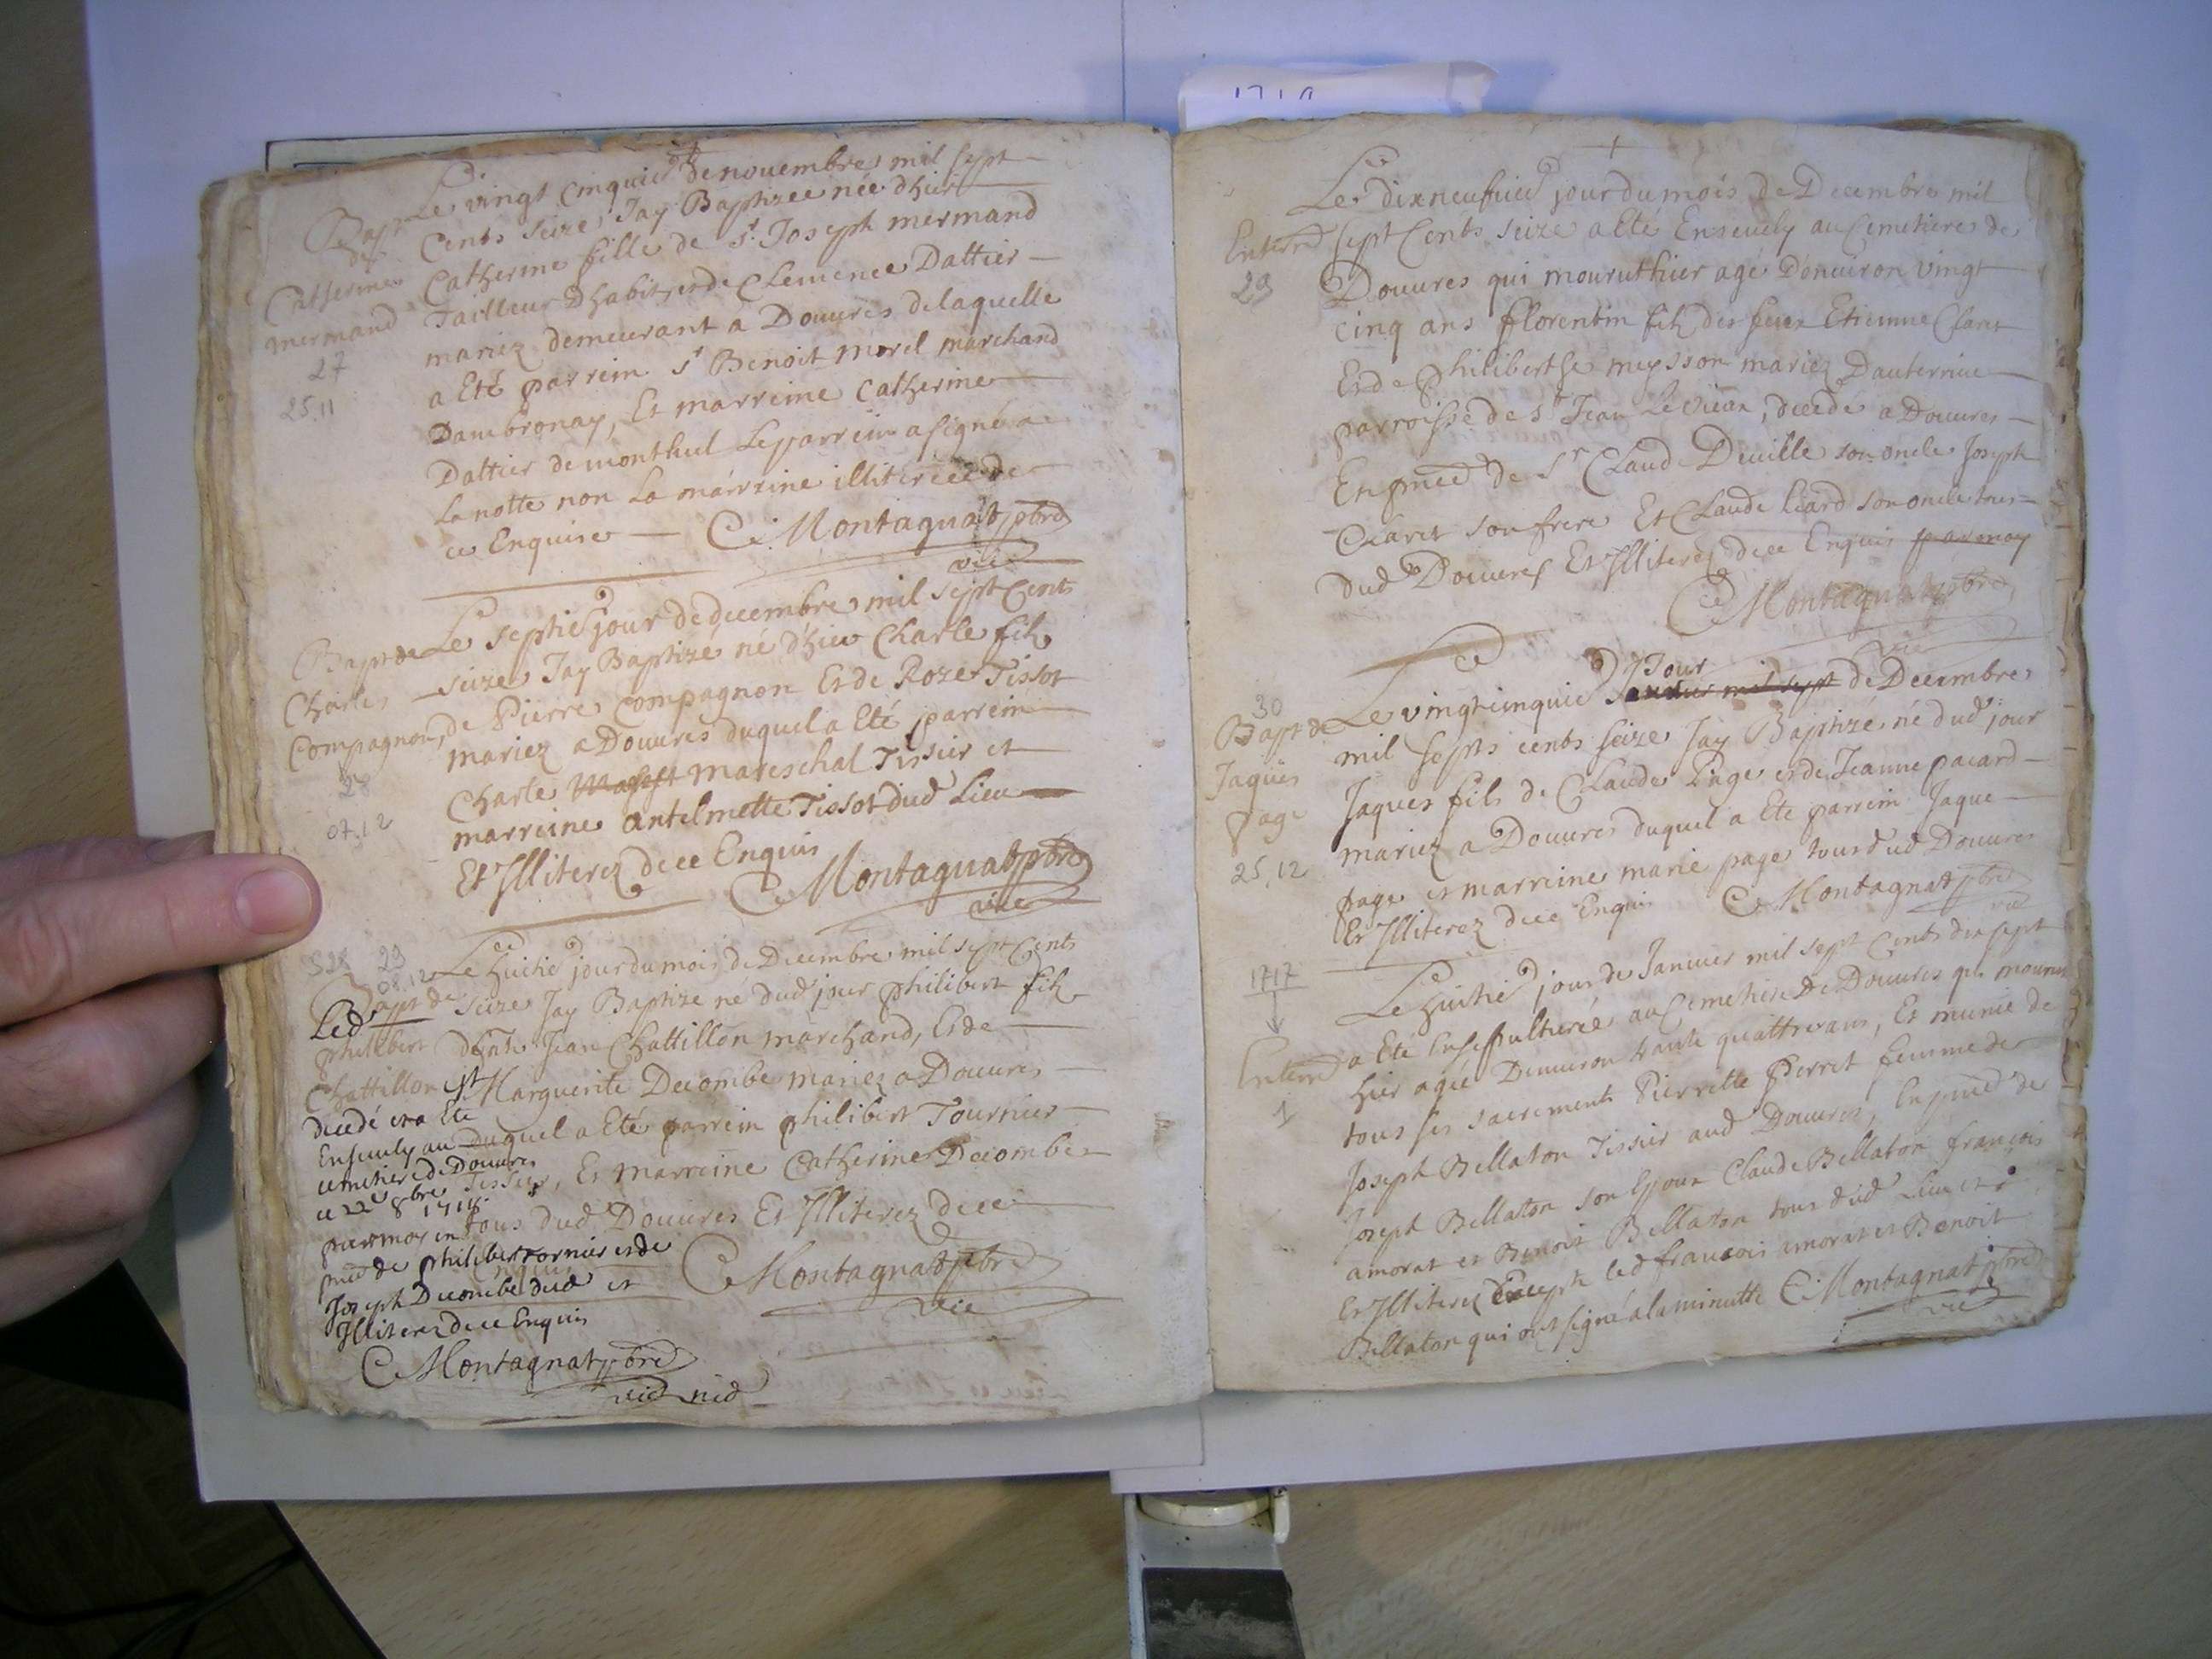 Bapt de
Catherine
mermand
27
25.11
Le vingt cinquie de novembre mil sept
Cents seize Jay Baptizee née dhier
Catherine fille de Sr. Joseph mermand
Tailleur Dhabit, et de Clemence Dattier
mariez demeurant a Douures delaquelle
a Eté parrein Sr Benoit morel marchand
Dambronay, Et marreine Catherine
Dattier de monthul Leparrein a signé a
La notte non La marreine illiterée de
ce Enquise C. Montagnat pbre
vic
Bapt de
Charles
Compagnon
28
07.12
Le septie jour de decembre mil sept Cents
seize Jay Baptizé né d'hier Charle fils
de Pierre Compagnon Et de Roze Tissot
mariez a Douures duquel a Eté parrein
Charle mareschal Tissier et
marreine antelmette Tissot dud Lieu
Et Illiterez de ce Enquis
C. Montagnat pbre
vic
29
08.12
Bapt de
philibert
Chattillon
Le huitie jour du mois de Decembre mil sept Cents
seize Jay Baptize né dud jour philibert fils
Jean Chattillon marchand, Et de
Marguerite Decombe mariez a Douures
duquel a Eté parrein philibert Tournier
Tissier, Et marreine Catherine Decombe
tous dud Douures Et Illiterez de ce
Enquis C. Montagnat pbre
vic
Led
est
decedé et a Eté
Enseuely au
cemetiere de Douures
ce 22e 8bre 1718
par moy en
pnce de philibert Tornier et de
Joseph Decombe dud et
Illiterez de ce Enquis
C. Montagnat pbre
vic
Enterrt
29
Le dixneufuie jour du mois de Decembre mil
sept Cents seize a Eté Enseuely au Cemetiere de
Douures qui mourut hier agé D'enuiron vingt
cinq ans florentin fils des feux Etienne Claret
Et de Philiberthe meysson mariez Dauterriue
parroisse de St Jean Le vieux, decedé a Douures
En pnce de Sr Claude Deuille son oncle Joseph
Claret son frere Et Claude liard son oncle tous
dud Douures Et Illiterez de ce Enquis par moy
C. Montagnat pbre
vic
30
Bapt de
Jaques
page
25.12
Le vingtcinquie Jour de Decembre
mil septs cents seize Jay Baptizé né dud jour
Jaques fils de Claude Page et de Jeanne pacard
mariez a Douures duquel a Eté parrein Jaque
page et marreine marie page tous dud Douures
Et Illiterez de ce Enquis C. Montagnat pbre
vic
1717
Enterrt
1
Le huitie jour de Januier mil sept Cents dix sept
a Eté Ensepulturée au Cemetiere De Douures qui mourut
hier agée Denuiron trante quattre ans, Et munie de
tous ses sacrements Pierrette Pierret femme de
Joseph Bellaton Tissier aud Douures, En pnce de
Joseph Bellaton son Epoux Claude Bellaton françois
amorat et Benoit Bellaton tous dud Lieu et
Et Illiterez Excepte led francois amorat et Benoit
Bellaton qui ont signé a la minutte C. Montagnat pbre
vic